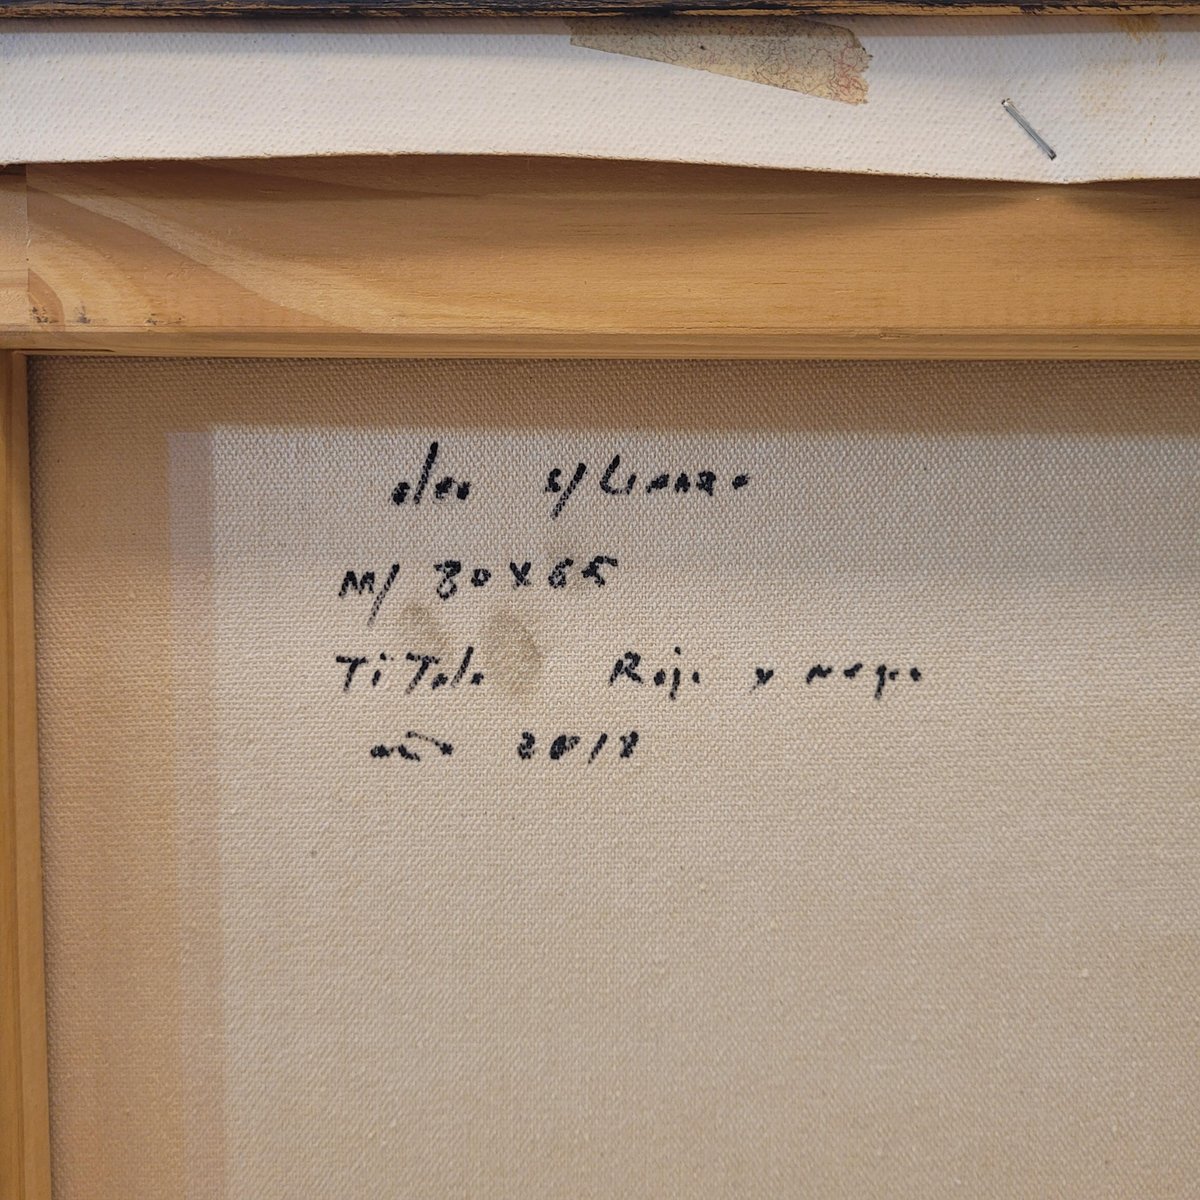 oleo s/Lienzo
M/ 80 x 65
Titulo Rojo y negro
año 2018